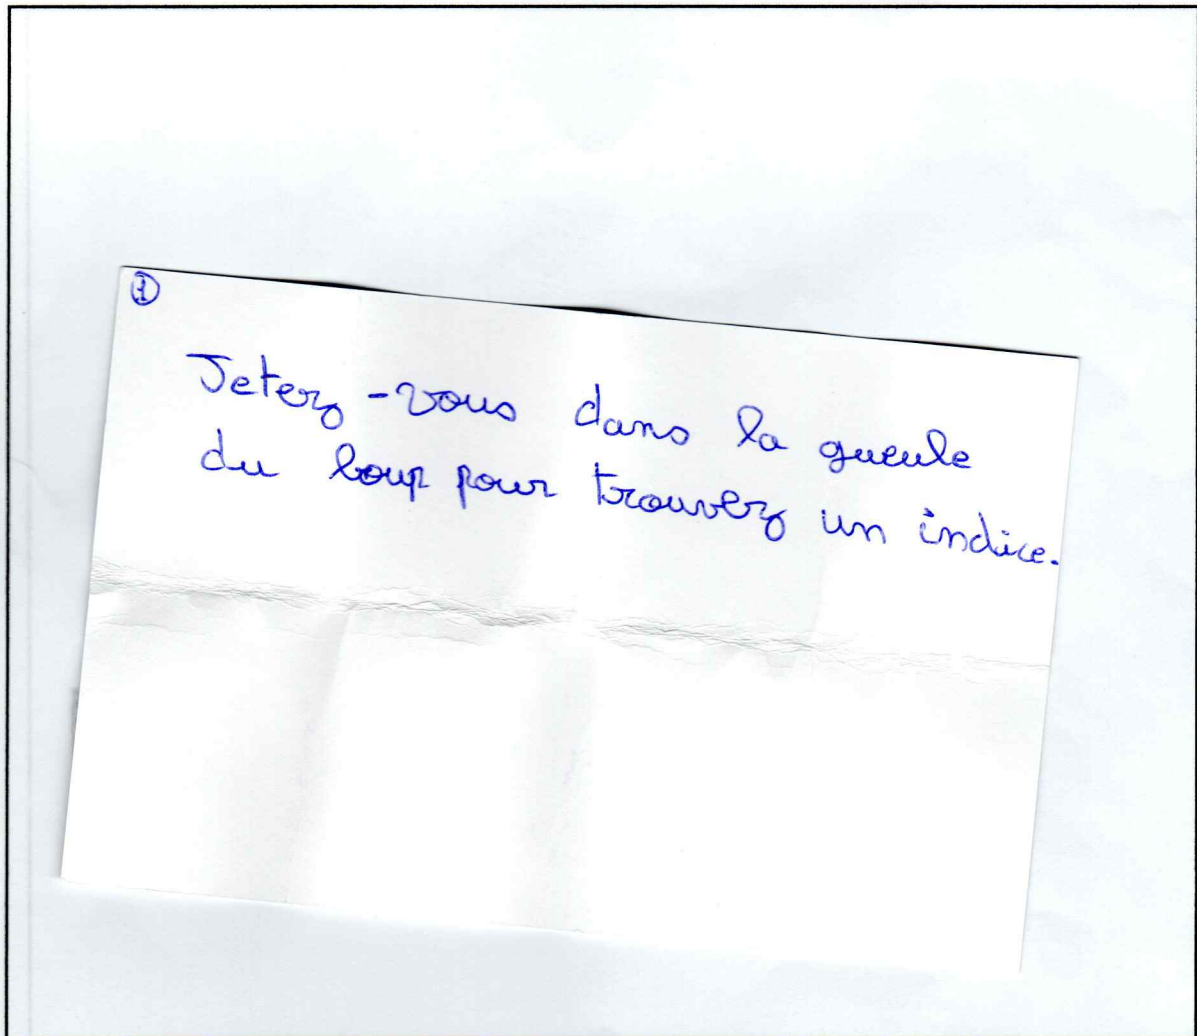 ①
Jetez-vous dans la gueule
du loup pour trouvez un indice.